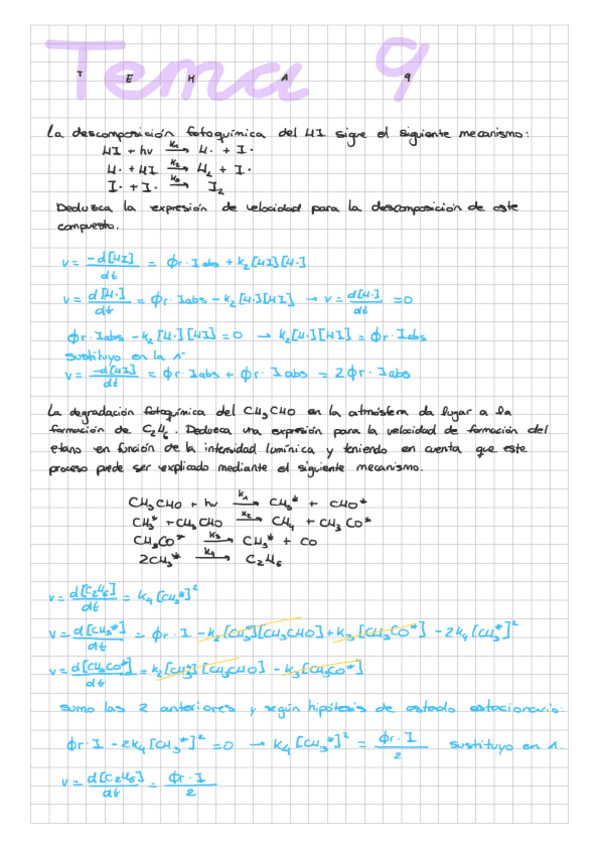 Tema 9
T E M A 9
La descomposición fotoquímica del HI sigue el siguiente mecanismo:
HI + hν —k₁→ H· + I·
H· + HI —k₂→ H₂ + I·
I· + I· —k₃→ I₂
Deduzca la expresión de velocidad para la descomposición de este
compuesto.
v = -d[HI]/dt = ϕr · Iabs + k₂[HI][H·]
v = d[H·]/dt = ϕr · Iabs - k₂[H·][HI] → v = d[H·]/dt = 0
ϕr · Iabs - k₂[H·][HI] = 0 → k₂[H·][HI] = ϕr · Iabs
sustituyo en la 1ª
v = -d[HI]/dt = ϕr · Iabs + ϕr · Iabs = 2ϕr · Iabs
La degradación fotoquímica del CH₃CHO en la atmósfera da lugar a la
formación de C₂H₆. Deduzca una expresión para la velocidad de formación del
etano en función de la intensidad lumínica y teniendo en cuenta que este
proceso puede ser explicado mediante el siguiente mecanismo.
CH₃CHO + hν —k₁→ CH₃* + CHO*
CH₃* + CH₃CHO —k₂→ CH₄ + CH₃CO*
CH₃CO* —k₃→ CH₃* + CO
2CH₃* —k₄→ C₂H₆
v = d[C₂H₆]/dt = k₄[CH₃*]²
v = d[CH₃*]/dt = ϕr · I - k₂[CH₃*][CH₃CHO] + k₃[CH₃CO*] - 2k₄[CH₃*]²
v = d[CH₃CO*]/dt = k₂[CH₃*][CH₃CHO] - k₃[CH₃CO*]
sumo las 2 anteriores y según hipótesis de estado estacionario:
ϕr · I - 2k₄[CH₃*]² = 0 → k₄[CH₃*]² = ϕr · I/2 sustituyo en 1.
v = d[C₂H₆]/dt = ϕr · I/2